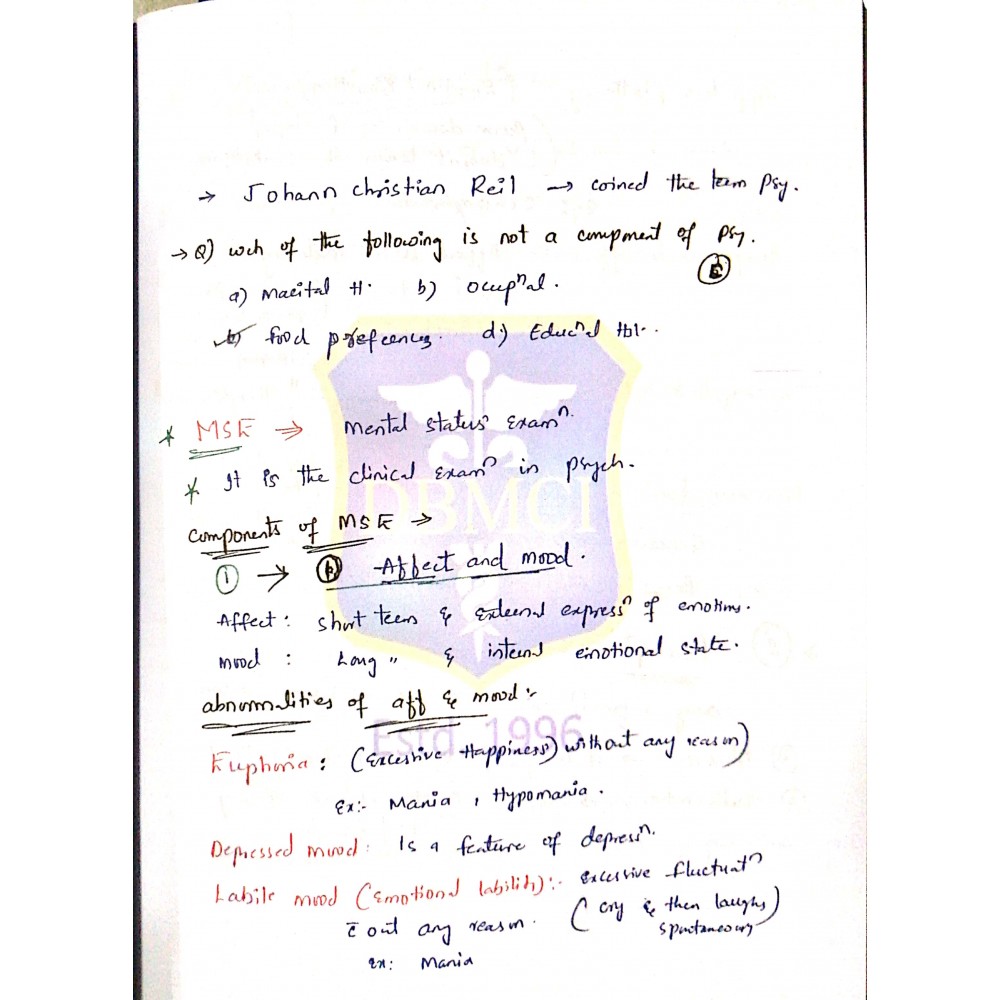 → Johann christian Reil → coined the term Psy.
→ Q) wch of the following is not a compment of psy.
a) Marital H. b) Ocupⁿal.
c) food prefrences. d) Educⁿal
* MSE ⇒ Mental status Examⁿ.
* It is the clinical Examⁿ in psych.
Components of MSE →
① → Affect and mood.
Affect: short term & external expressⁿ of emotions.
mood: Long " & internal emotional state.
abnormalities of aff & mood:
Euphoria: (Excessive Happiness) without any reason)
Ex:- Mania, Hypomania.
Depressed mood: Is a feature of depressⁿ.
Labile mood (Emotional lability):- excessive fluctuatⁿ
c̄out any reason. (cry & then laughs)
ex: Mania
DBMCI
Estd. 1996